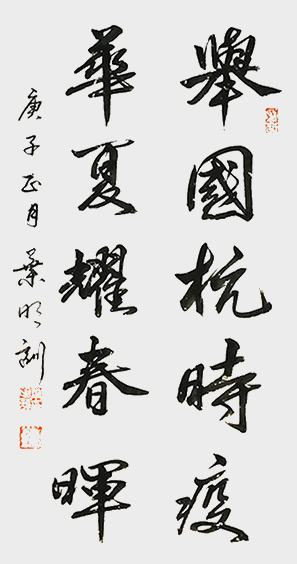 舉國抗時疫
華夏耀春暉
庚子正月葉明訓